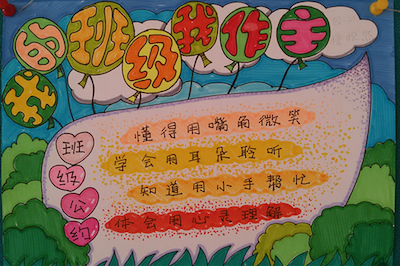 我的班级我作主
班级公约
懂得用嘴角微笑
学会用耳朵聆听
知道用小手帮忙
体会用心灵理解